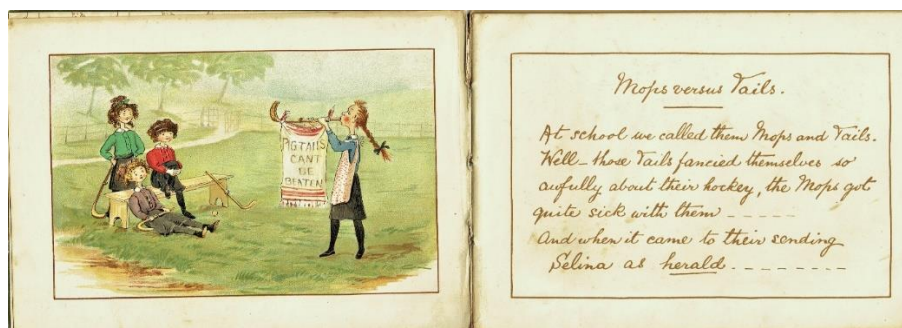 PIGTAILS
CANT
BE
BEATEN
Mops versus Tails.
At school we called them Mops and Tails.
Well - those Tails fancied themselves so
awfully about their hockey, the Mops got
quite sick with them - - - - -
And when it came to their sending
Selina as herald - - - - - - - -